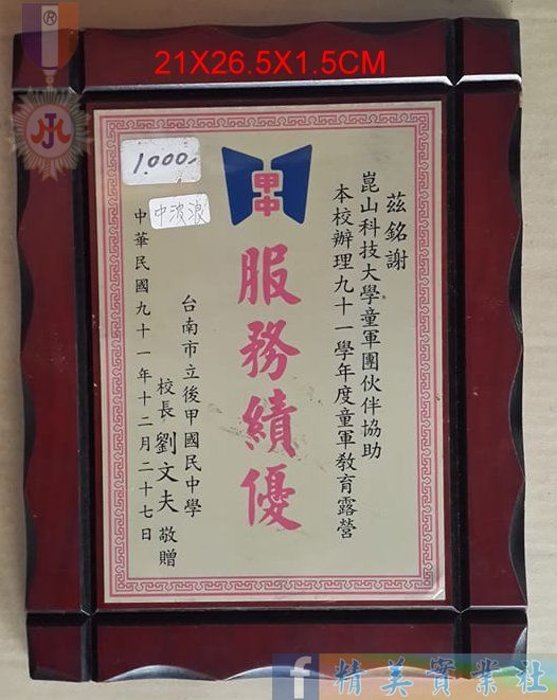 21X26.5X1.5CM
1000,-
中波浪
甲中
茲銘謝
崑山科技大學童軍團伙伴協助
本校辦理九十一學年度童軍教育露營
服務績優
台南市立後甲國民中學
校長 劉文夫 敬贈
中華民國九十一年十二月二十七日
f 精美實業社